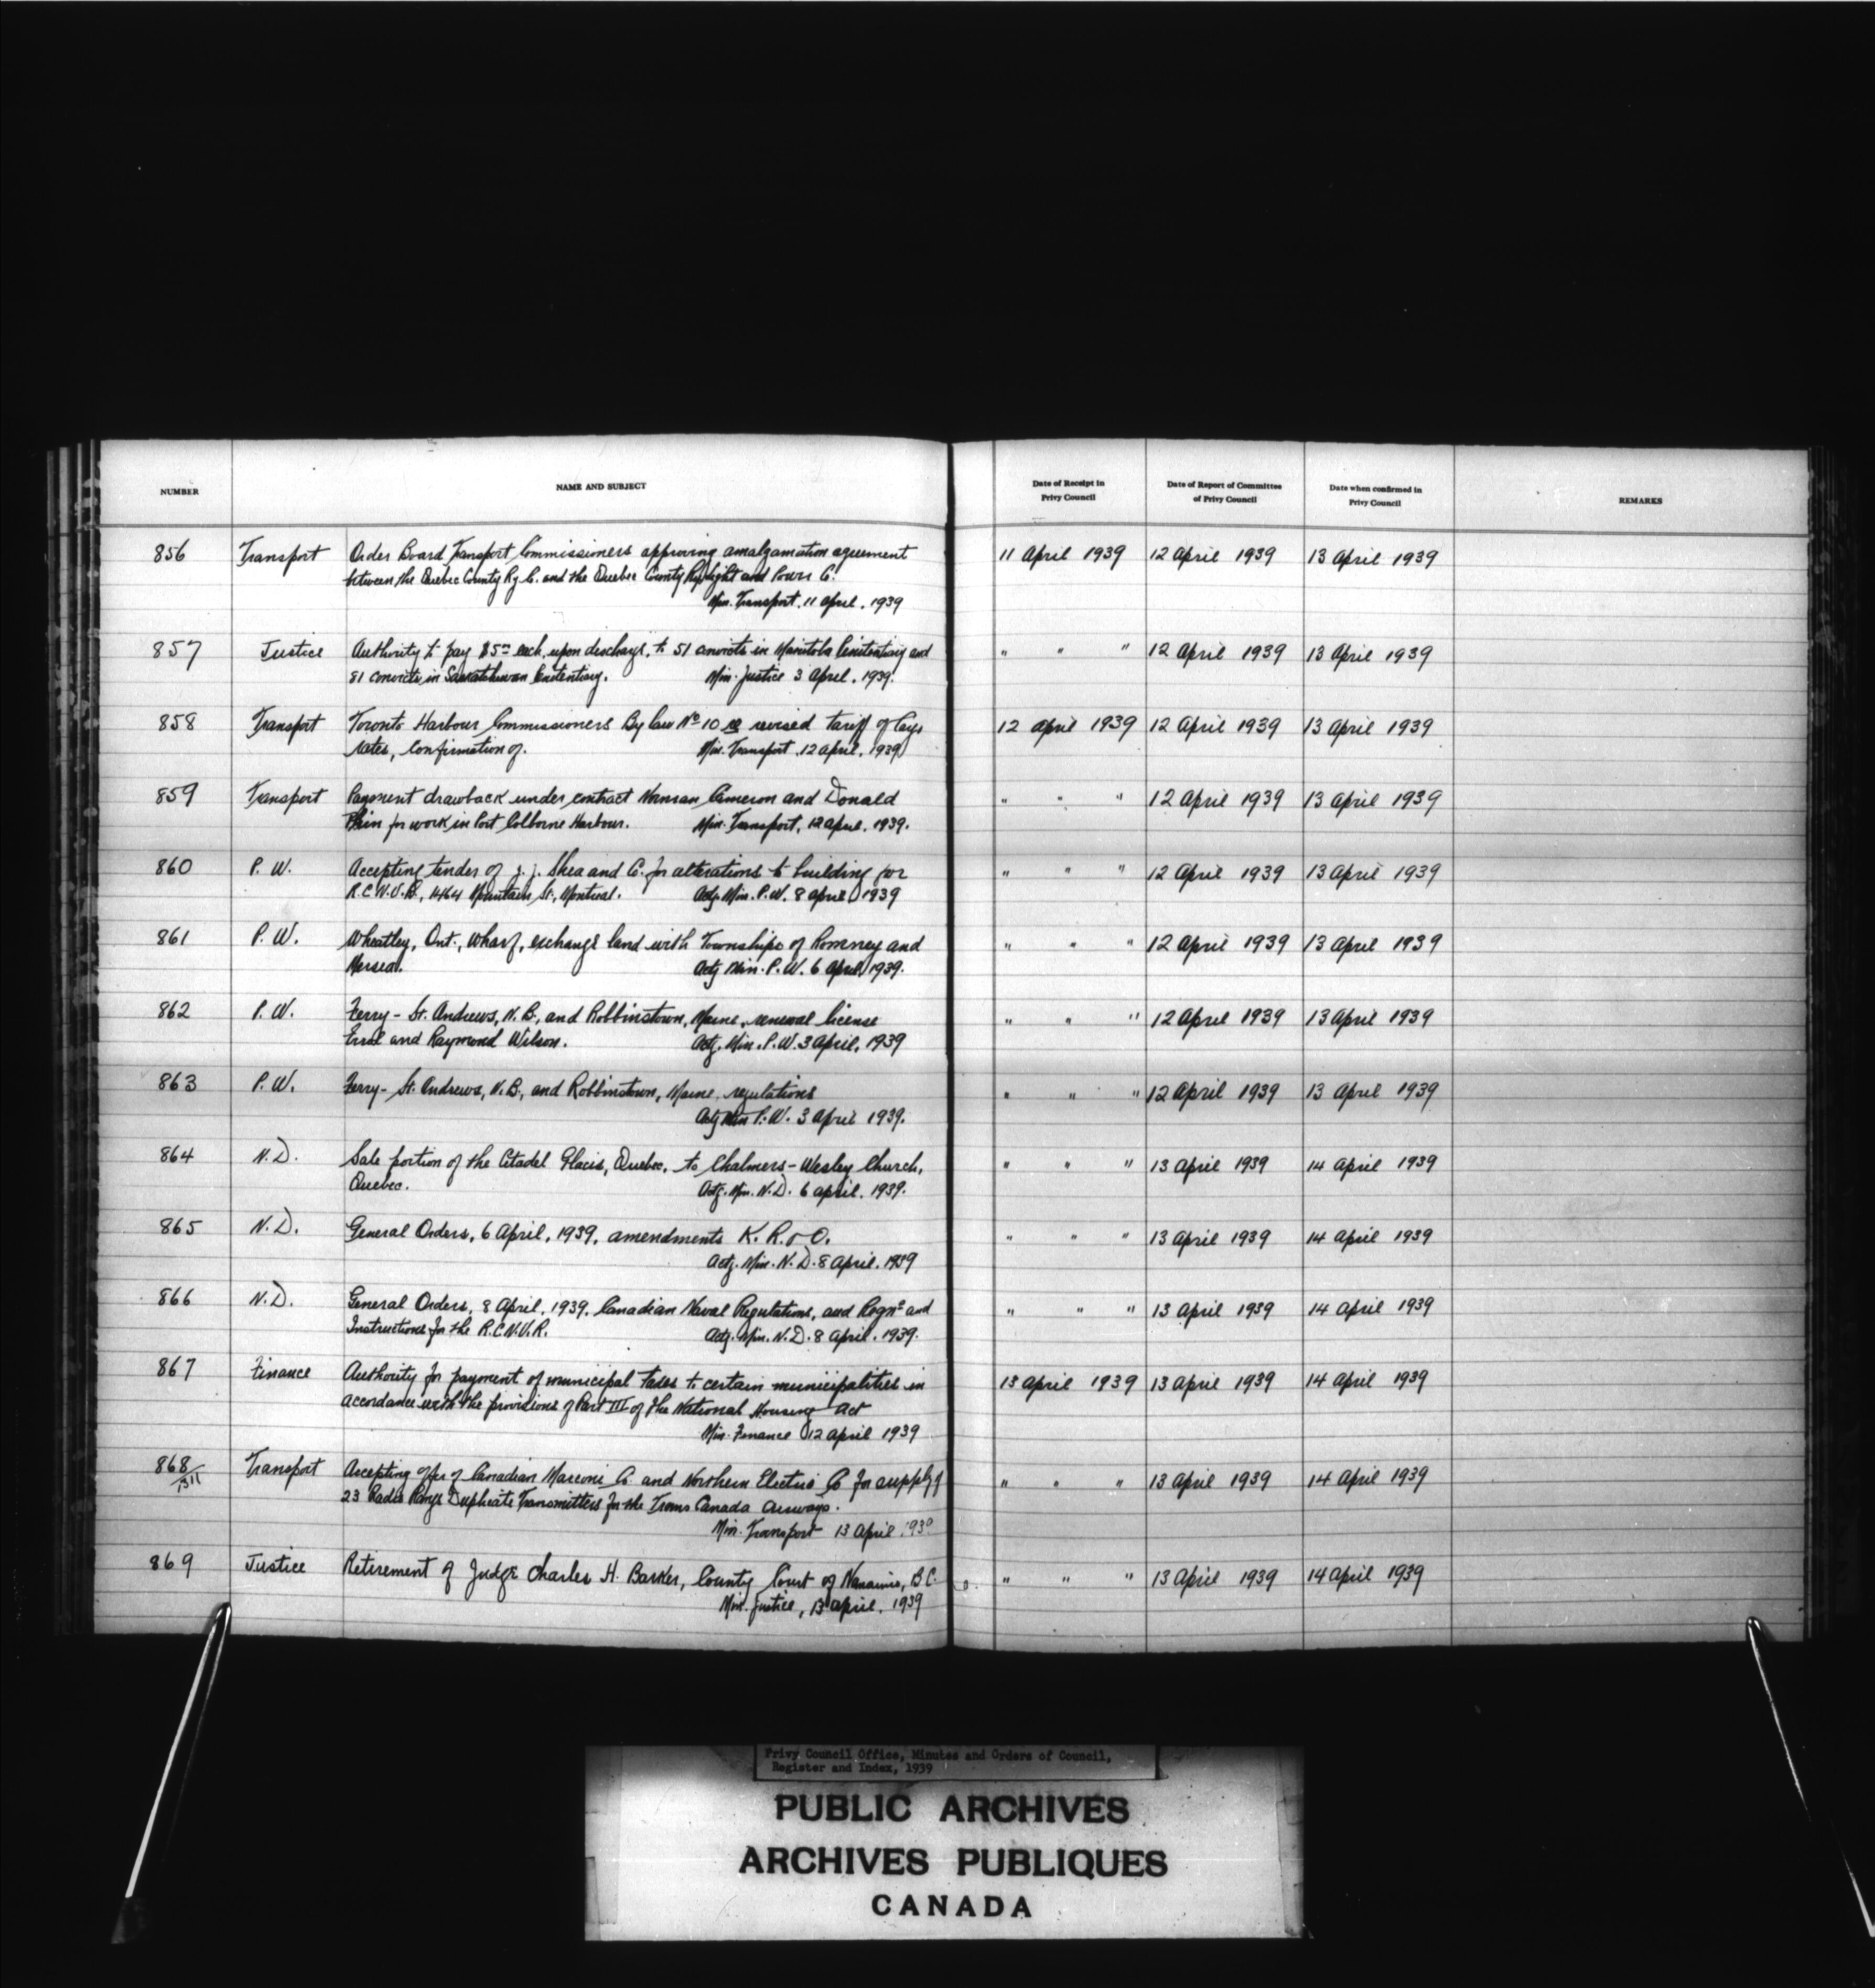 NUMBER NAME AND SUBJECT Date of Receipt in Privy Council Date of Report of Committee of Privy Council Date when confirmed in Privy Council REMARKS
856 Transport Order Board Transport Commissioners approving amalgamation agreement 11 April 1939 12 April 1939 13 April 1939
between the Quebec County Ry Co. and the Quebec County Ry Light and Power Co.
Min. Transport, 11 April, 1939
857 Justice Authority to pay $5.00 each, upon discharge, to 51 convicts in Manitoba Penitentiary and " " " 12 April 1939 13 April 1939
81 convicts in Saskatchewan Penitentiary. Min. Justice 3 April, 1939.
858 Transport Toronto Harbour Commissioners By law No 10 re revised tariff of Cargo 12 April 1939 12 April 1939 13 April 1939
rates, confirmation of. Min. Transport, 12 April, 1939
859 Transport Payment drawback under contract Norman Cameron and Donald " " " 12 April 1939 13 April 1939
Phin for work in Port Colborne Harbour. Min. Transport, 12 April, 1939.
860 P. W. Accepting tender of J. J. Shea and Co. for alterations to building for " " " 12 April 1939 13 April 1939
R.C.N.V.R., 1464 Mountain St., Montreal. Actg. Min. P.W. 8 April, 1939
861 P. W. Wheatley, Ont., wharf, exchange land with Townships of Romney and " " " 12 April 1939 13 April 1939
Mersea. Actg Min. P.W. 6 April, 1939.
862 P. W. Ferry - St. Andrews, N.B., and Robbinstown, Maine, renewal license " " " 12 April 1939 13 April 1939
Errol and Raymond Wilson. Actg. Min. P.W. 3 April, 1939
863 P. W. Ferry - St. Andrews, N.B., and Robbinstown, Maine, regulations " " " 12 April 1939 13 April 1939
Actg Min P.W. 3 April 1939.
864 N.D. Sale portion of the Citadel Glacis, Quebec, to Chalmers-Wesley Church, " " " 13 April 1939 14 April 1939
Quebec. Actg. Min. N.D. 6 April, 1939.
865 N.D. General Orders, 6 April, 1939, amendments K. R. & O. " " " 13 April 1939 14 April 1939
Actg. Min. N.D. 8 April, 1939
866 N.D. General Orders, 8 April, 1939, Canadian Naval Regulations, and Regns and " " " 13 April 1939 14 April 1939
Instructions for the R.C.N.V.R. Actg. Min. N.D. 8 April, 1939.
867 Finance Authority for payment of municipal taxes to certain municipalities in 13 April 1939 13 April 1939 14 April 1939
accordance with the provisions of Part III of the National Housing Act
Min. Finance 12 April 1939
868/1311 Transport Accepting offer of Canadian Marconi Co. and Northern Electric Co for supply of " " " 13 April 1939 14 April 1939
23 Radio Range Duplicate Transmitters for the Trans Canada Airways.
Min. Transport 13 April 1939
869 Justice Retirement of Judge Charles H. Barker, County Court of Nanaimo, B.C. " " " 13 April 1939 14 April 1939
Min. Justice, 13 April, 1939
Privy Council Office, Minutes and Orders of Council,
Register and Index, 1939
PUBLIC ARCHIVES
ARCHIVES PUBLIQUES
CANADA